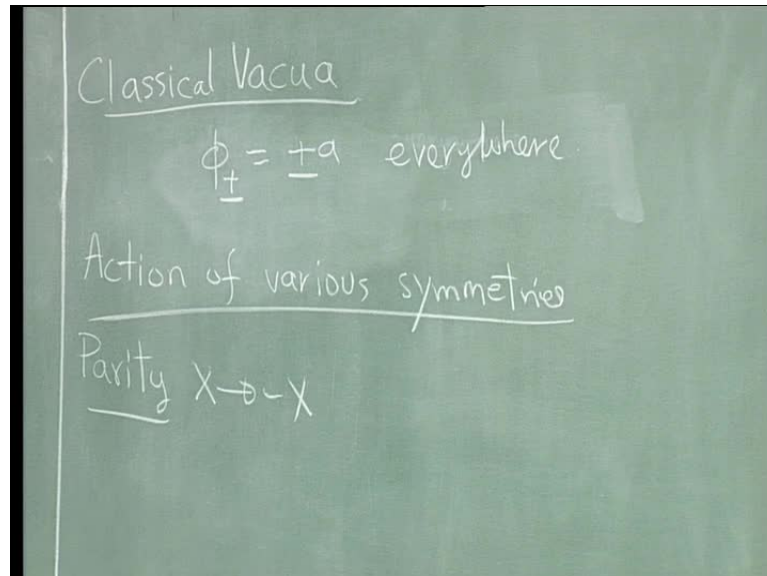 Classical Vacua
ϕ± = ±a everywhere
Action of various symmetries
Parity X→-X